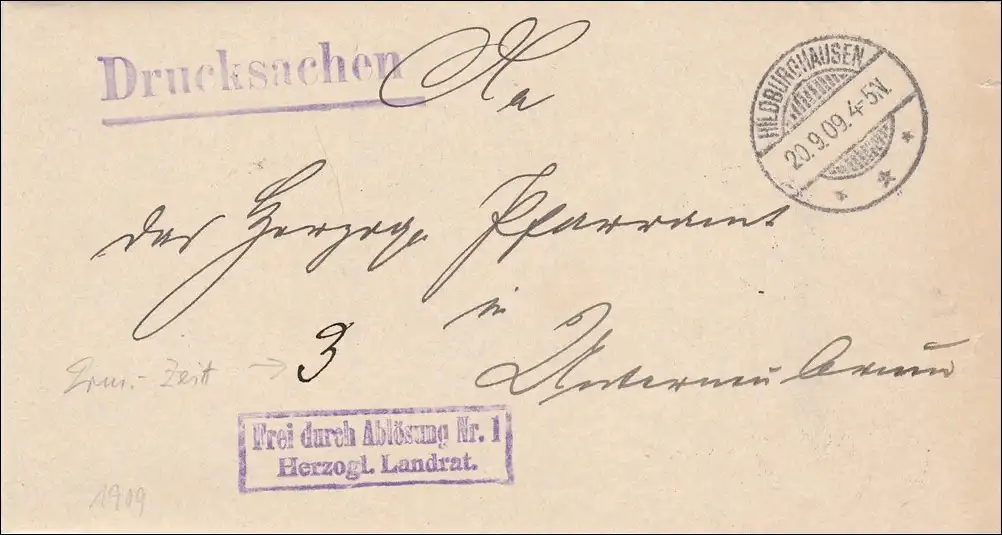 Drucksachen
An
HILDBURGHAUSEN
20.9.09.4-5N.
das Herzog. Pfarramt
in
3
Zeit →
Frei durch Ablösung Nr. 1
Herzogl. Landrat.
1909